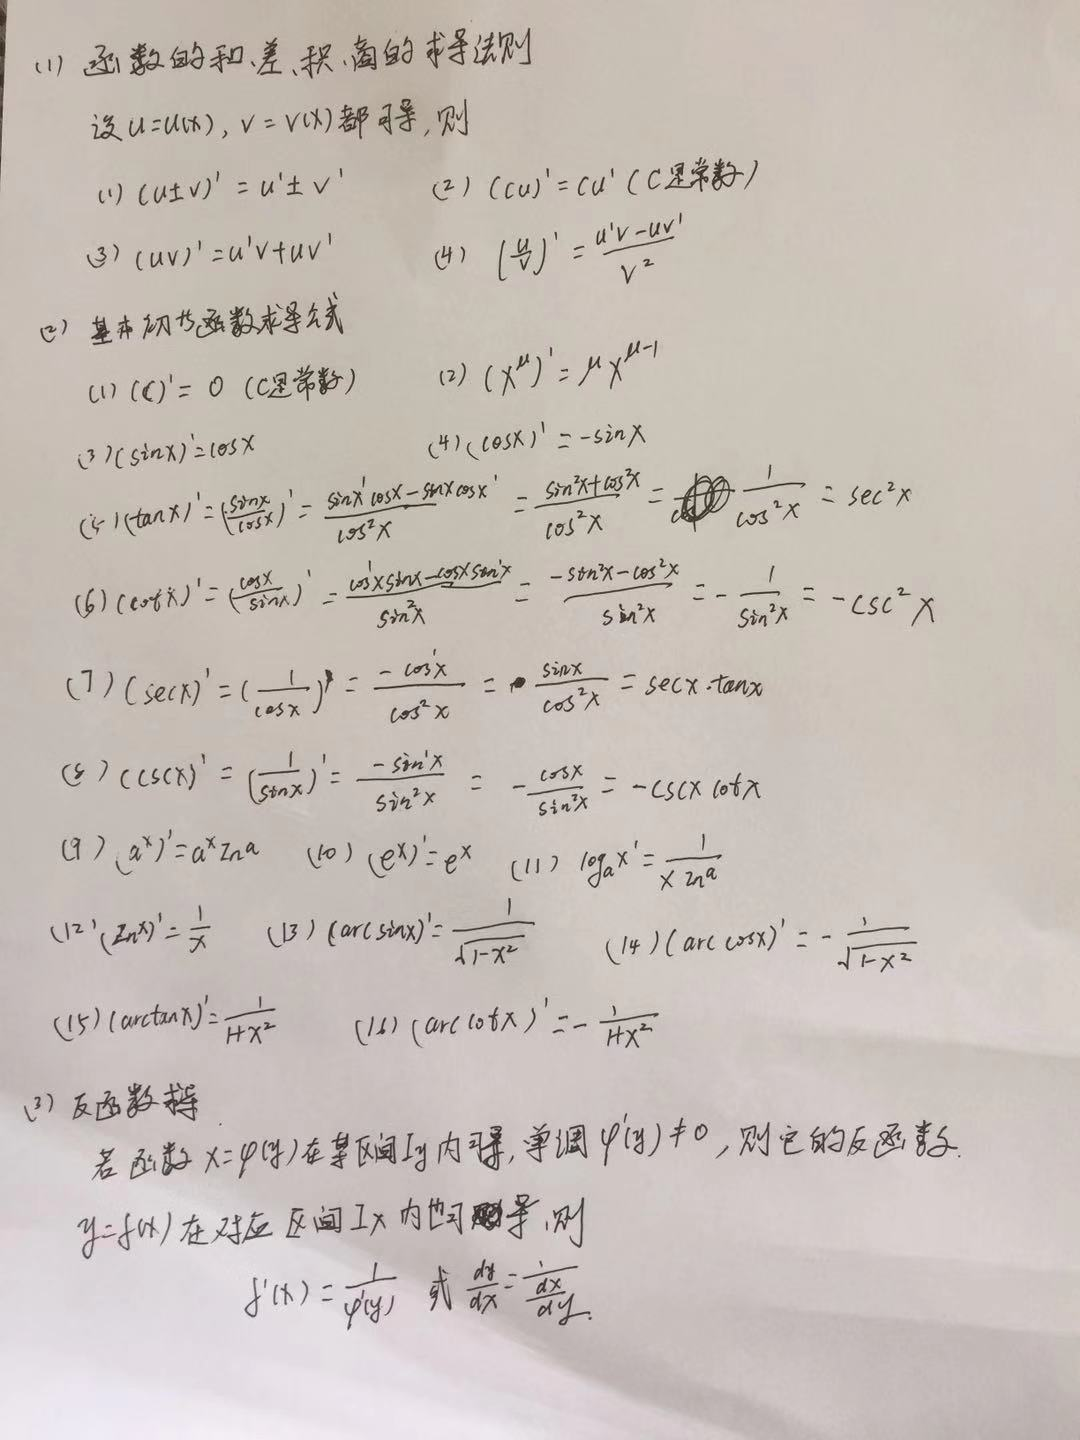 (1) 函数的和、差、积、商的求导法则
设u=u(x), v=v(x)都可导,则
(1) (u±v)'=u'±v' (2) (cu)'=cu' (C是常数)
(3) (uv)'=u'v+uv' (4) (u/v)'=(u'v-uv')/v²
(2) 基本初等函数求导公式
(1) (C)'=0 (C是常数) (2) (x^μ)'=μx^(μ-1)
(3) (sinx)'=cosx (4) (cosx)'=-sinx
(5) (tanx)'=(sinx/cosx)'=(sinx'cosx-sinxcosx')/cos²x=(sin²x+cos²x)/cos²x=1/cos²x=sec²x
(6) (cotx)'=(cosx/sinx)'=(cos'xsinx-cosxsin'x)/sin²x=(-sin²x-cos²x)/sin²x=-1/sin²x=-csc²x
(7) (secx)'=(1/cosx)'=(-cos'x)/cos²x=sinx/cos²x=secx·tanx
(8) (cscx)'=(1/sinx)'=(-sin'x)/sin²x=-cosx/sin²x=-cscxcotx
(9) (a^x)'=a^x lna (10) (e^x)'=e^x (11) log_a x'=1/(x lna)
(12) (lnx)'=1/x (13) (arcsinx)'=1/√(1-x²) (14) (arccosx)'=-1/√(1-x²)
(15) (arctanx)'=1/(1+x²) (16) (arccotx)'=-1/(1+x²)
(3) 反函数求导
若函数x=φ(y)在某区间Iy内可导,单调φ'(y)≠0,则它的反函数.
y=f(x)在对应区间Ix内也可导,则
f'(x)=1/φ'(y) 或 dy/dx=1/(dx/dy).